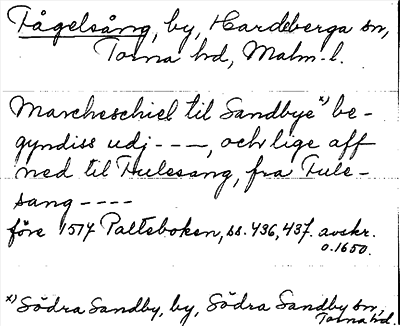 Fågelsång, by, Hardeberga sn,
Torna hd, Malm. l.
Marcheschiel til Sandbye x) be-
gyndiss udj - - - -, och lige aff
ned til Fulesang, fra Fule-
sang - - - -
före 1514 Palteboken, ss. 436, 437. avskr.
o. 1650.
x) Södra Sandby, by, Södra Sandby sn,
Torna hd.